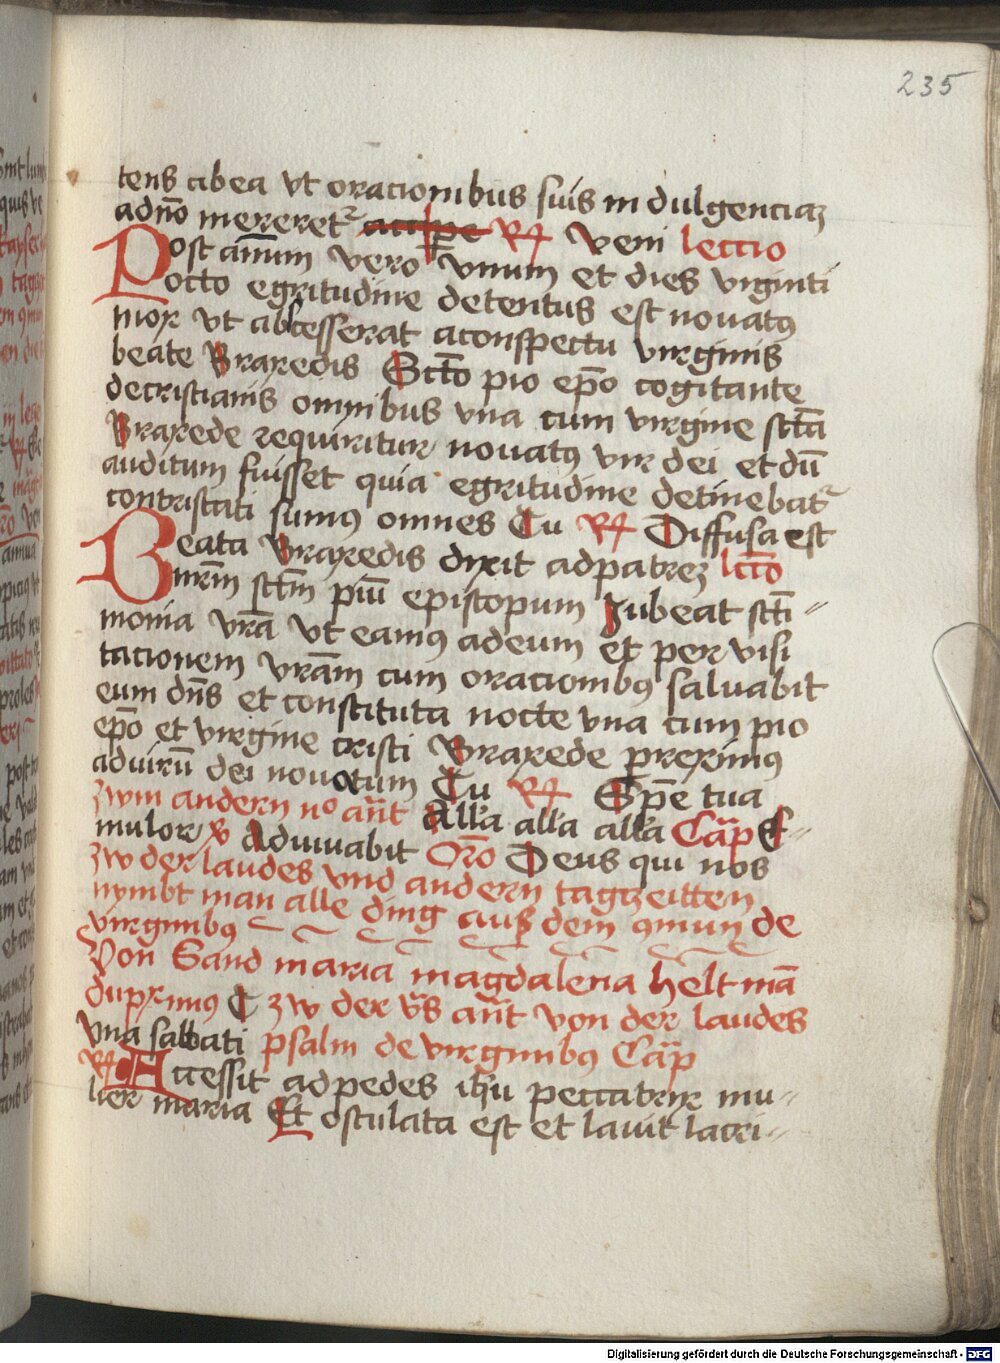 235
tens cibea vt oracionibus suis in dulgenciaȝ
adn̄o mereret᷑ accipe R⁊ veni leccio
Post an̄um vero vnum et dies viginti
octo egritudine detentus est nouatꝯ
mox vt abscesserat aconspectu virginis
beate Praxedis Sct̄o pio ep̄o cogitante
decristianis omnibus vna cum virgine sct̄a
Praxede requiritur nouatꝯ vir dei et dū
auditum fuisset quia egritudine detinebat᷑
contristati sumꝯ omnes Tu R⁊ Diffusa est
Beata Praxedis dixit adpatreȝ lcc̄o
nr̄m sct̄m piū episcopum Iubeat sct̄i
monia vr̄a vt eamꝯ adeum et per visi
tacionem vr̄am cum oracionibꝯ saluabit
eum dn̄s et constituta nocte vna cum pio
ep̄o et virgine cristi Praxede preximꝯ
advirū dei nouatum Tu R⁊ Sp̄e tua
zwm andern no an̄t All'a all'a all'a Cap̄ E
mulor ꝟ Adiuuabit Or̄o Deus qui nos
zw der laudes vnd andern tagzeitten
nymbt man alle ding aus dem ꝯmun de
virginibꝯ
Von Sand maria magdalena helt mā
duplꝰimꝯ C zw der v̄s an̄t von der laudes
Vna sabbati psalm de virginibꝯ Cap̄
R⁊ Accessit adpedes ihū peccatrix mu
lier maria Et osculata est et lauit lacri
Digitalisierung gefördert durch die Deutsche Forschungsgemeinschaft - DFG